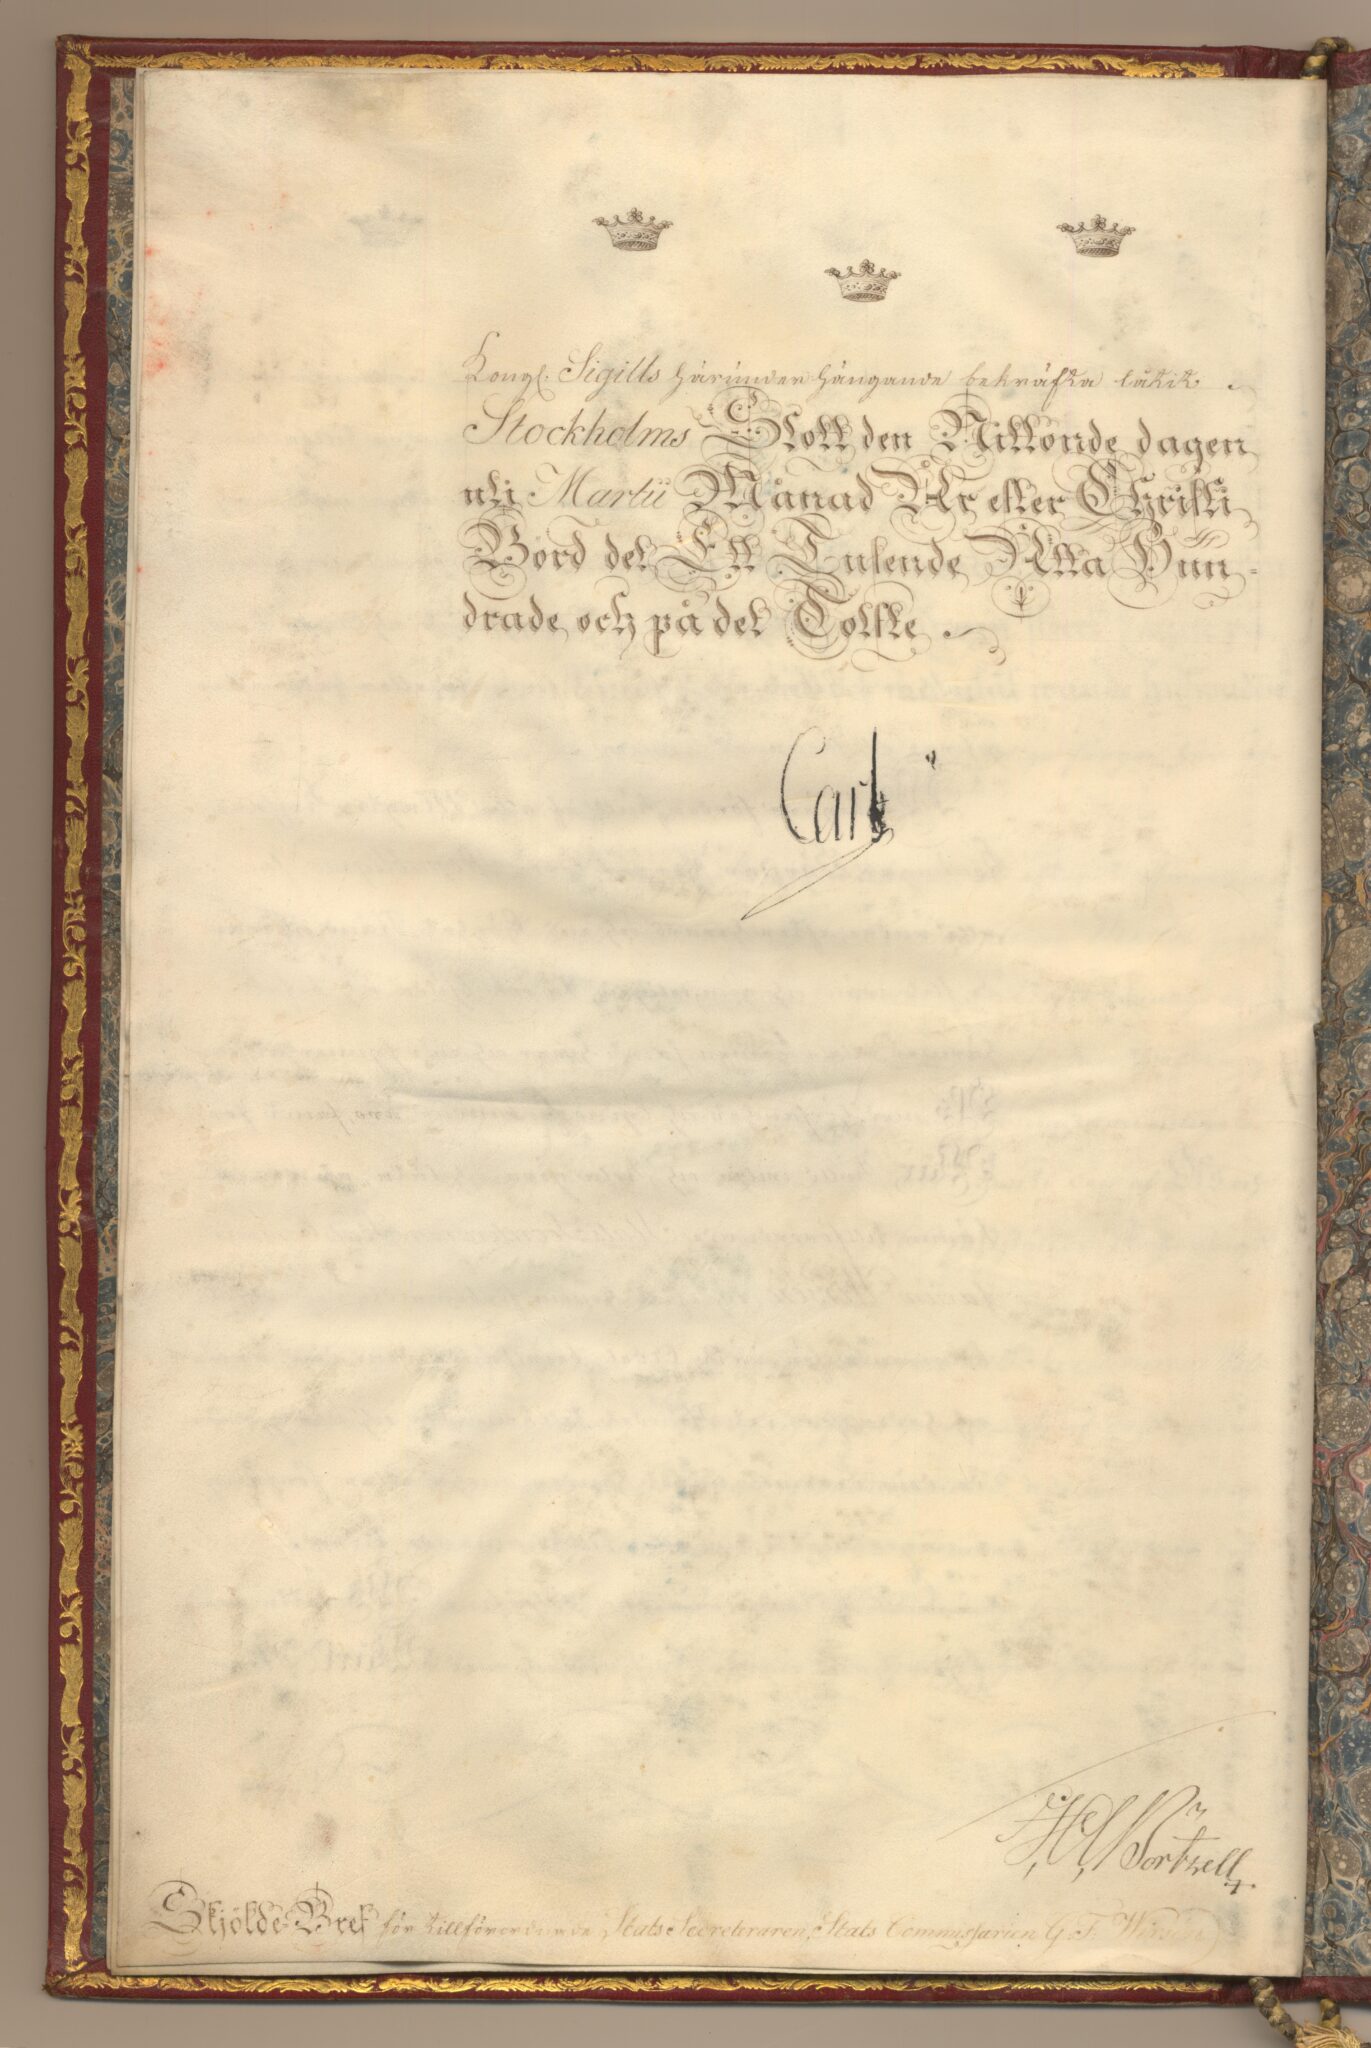 Kongl. Sigills härunder hängande bekräfta låtit
Stockholms Slott den Nittonde dagen
uti Martii Månad År efter Christi
Börd det Ett Tusende Åtta Hun-
drade och på det Tolfte.
Carl
Skjölde-Bref för tillförordnade Stats Secreteraren, Stats Commissarien G. F. Wirsén